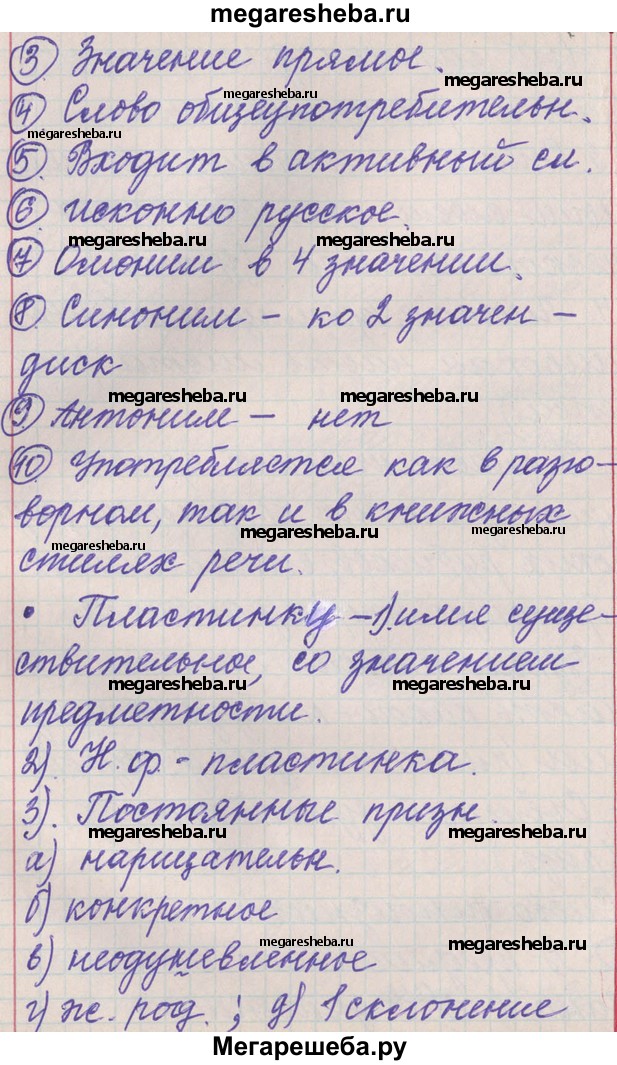 megaresheba.ru
3. Значение прямое.
megaresheba.ru
megaresheba.ru
4. Слово общеупотребительн.
megaresheba.ru
5. Входит в активный сл.
6. Исконно русское.
megaresheba.ru
megaresheba.ru
7. Омоним в 4 значении.
8. Синоним - ко 2 значен -
диск
megaresheba.ru
megaresheba.ru
9. Антоним - нет
10. Употребляется как в разго-
ворном, так и в книжных
megaresheba.ru
megaresheba.ru
стилях речи.
• Пластинку - 1). имя суще-
ствительное, со значением
megaresheba.ru
megaresheba.ru
предметности.
2). Н. ф. - пластинка.
3). Постоянные призн.
megaresheba.ru
megaresheba.ru
а) нарицательн.
б) конкретное
megaresheba.ru
megaresheba.ru
в) неодушевленное
г) ж. род. ; д) 1 склонение
megaresheba.ru
megaresheba.ru
Мегарешеба.ру